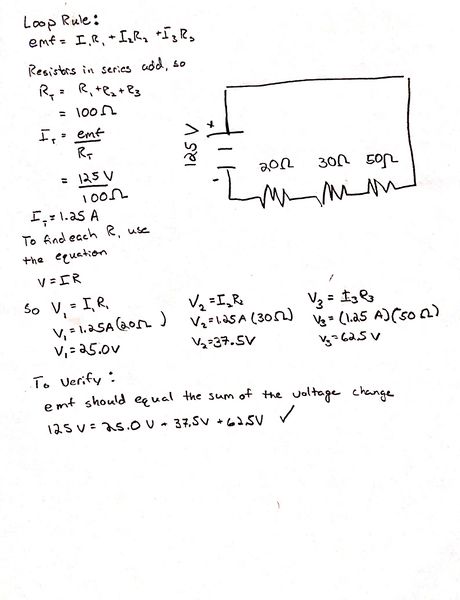 Loop Rule:
emf = I₁R₁ + I₂R₂ + I₃R₃
Resistors in series add, so
R_T = R₁+R₂+R₃
= 100Ω
I_T = emf / R_T
= 125V / 100Ω
I_T = 1.25 A
To find each R, use
the equation
V = IR
125 V
+
-
20Ω 30Ω 50Ω
So V₁ = I₁R₁
V₁ = 1.25A (20Ω)
V₁ = 25.0V
V₂ = I₂R₂
V₂ = 1.25A (30Ω)
V₂ = 37.5V
V₃ = I₃R₃
V₃ = (1.25 A)(50Ω)
V₃ = 62.5 V
To verify:
emf should equal the sum of the voltage change
125 V = 25.0 V + 37.5V + 62.5V ✓